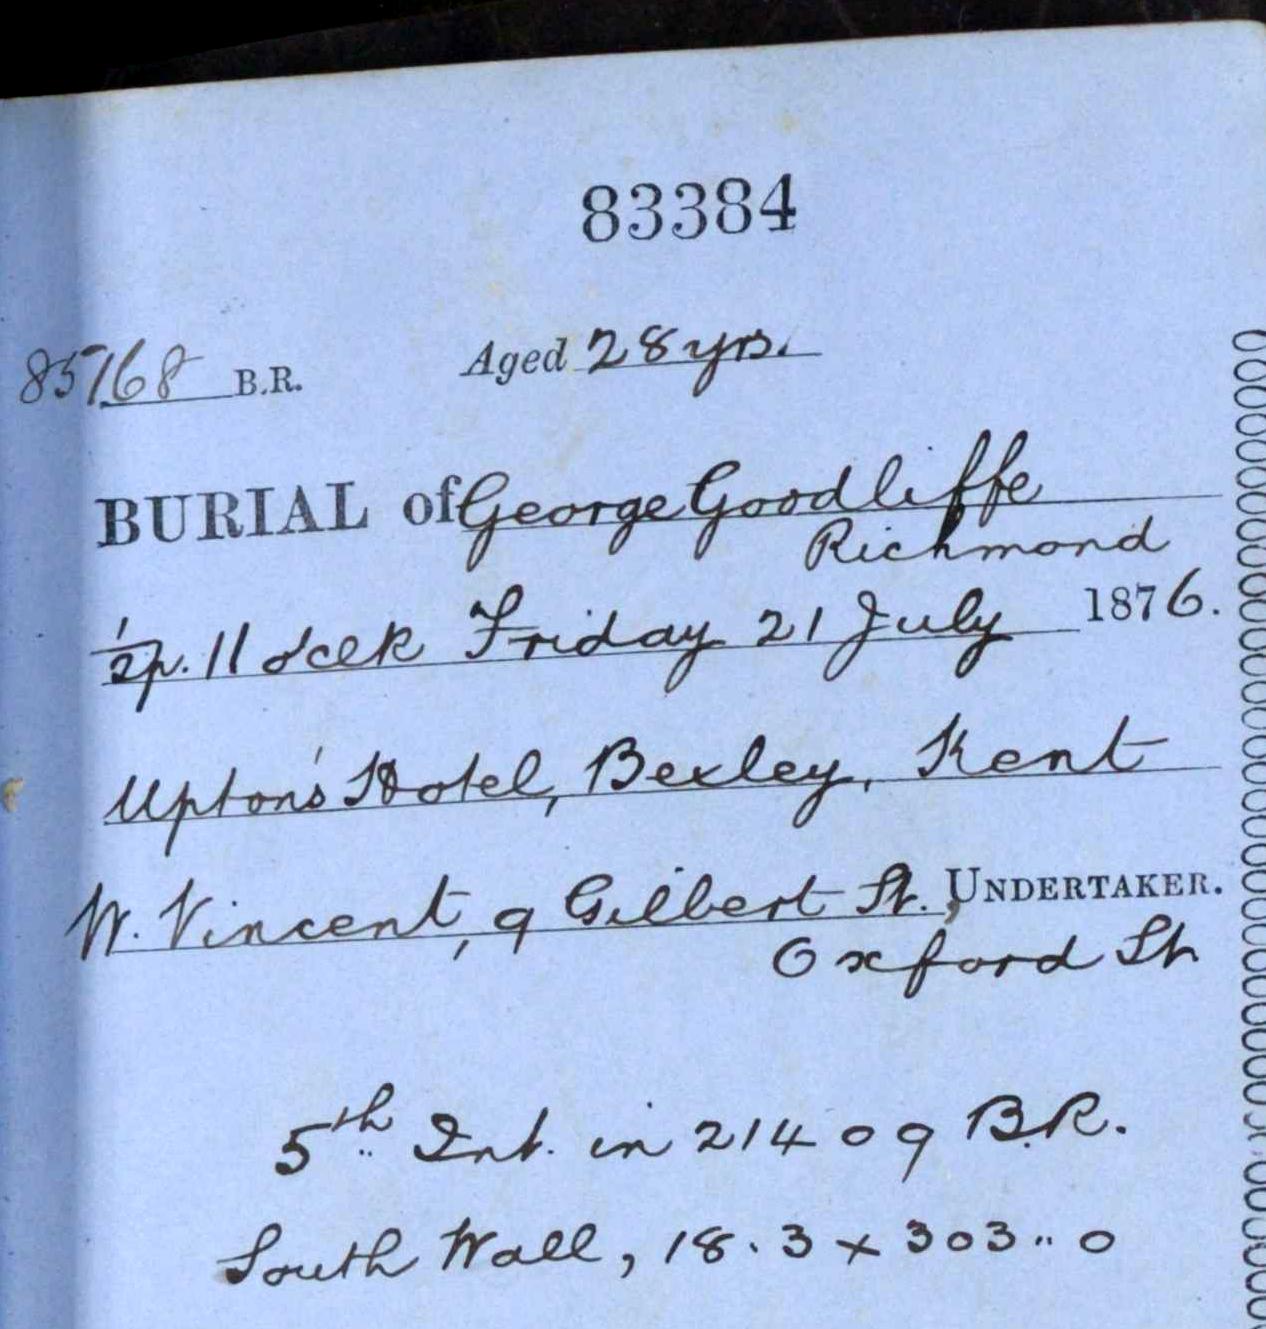 83384
85768 B.R. Aged 28 yrs.
BURIAL of George Goodliffe
Richmond
½ p. 11 oclk Friday 21 July 1876.
Upton's Hotel, Bexley, Kent
W. Vincent, 9 Gilbert St., UNDERTAKER.
Oxford St
5th Int. in 21409 B.R.
South Wall, 18.3 x 303 " 0